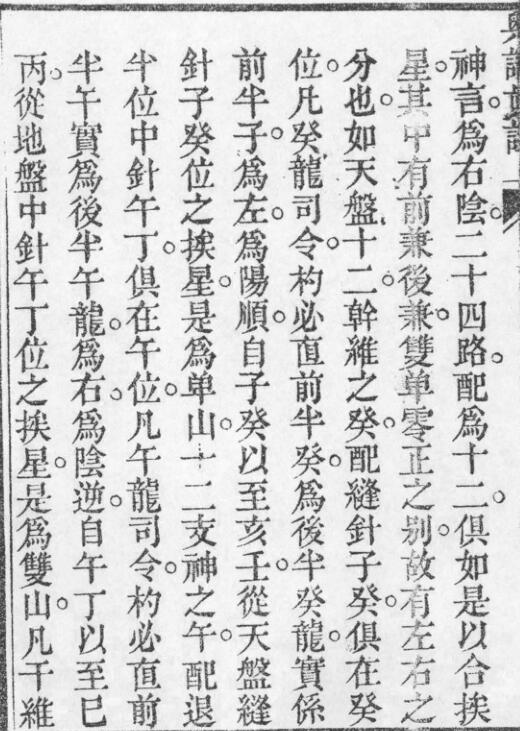 神言爲右陰。二十四路。配爲十二。俱如是以合挨
星。其中有前兼後兼。雙单零正之别。故有左右之
分也。如天盤十二幹維之癸。配縫針子癸。俱在癸
位。凡癸龍司令。杓必直前半癸。爲後半。癸龍實係
前半子。爲左。爲陽順。自子癸以至亥壬。從天盤縫
針子癸位之挨星。是爲单山。十二支神之午。配退
半位中針午丁。俱在午位。凡午龍司令。杓必直前
半午實爲後半午龍。爲右。爲陰逆。自午丁以至巳
丙。從地盤中針午丁位之挨星。是爲雙山。凡干維